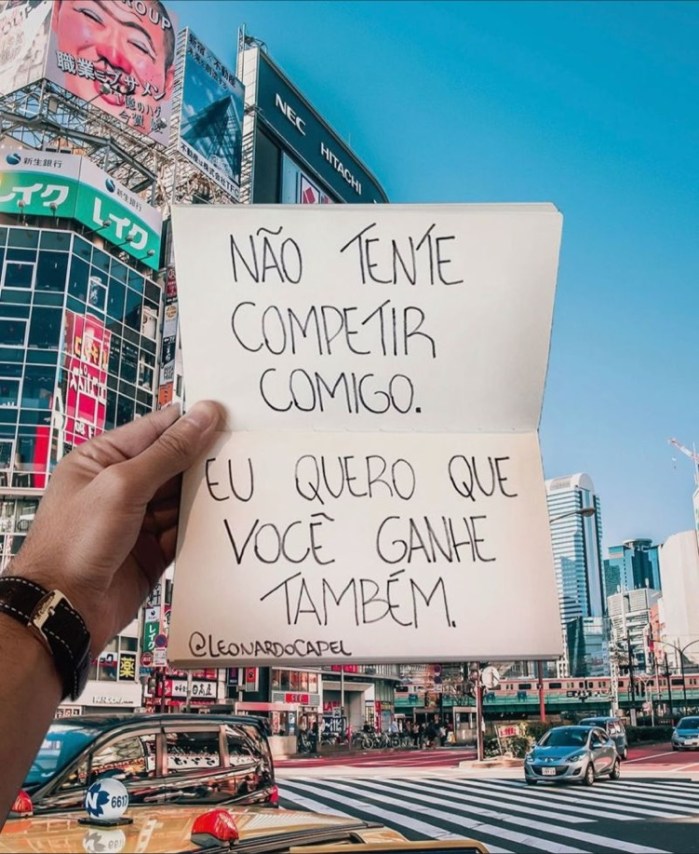 GROUP
職業=ブサメン
NEC
HITACHI
新生銀行
新生銀行
レイク
レイク
NÃO TENTE
COMPETIR
COMIGO.
EU QUERO QUE
VOCÊ GANHE
TAMBÉM.
@LEONARDOCAPEL
レイク
薬
N 6617